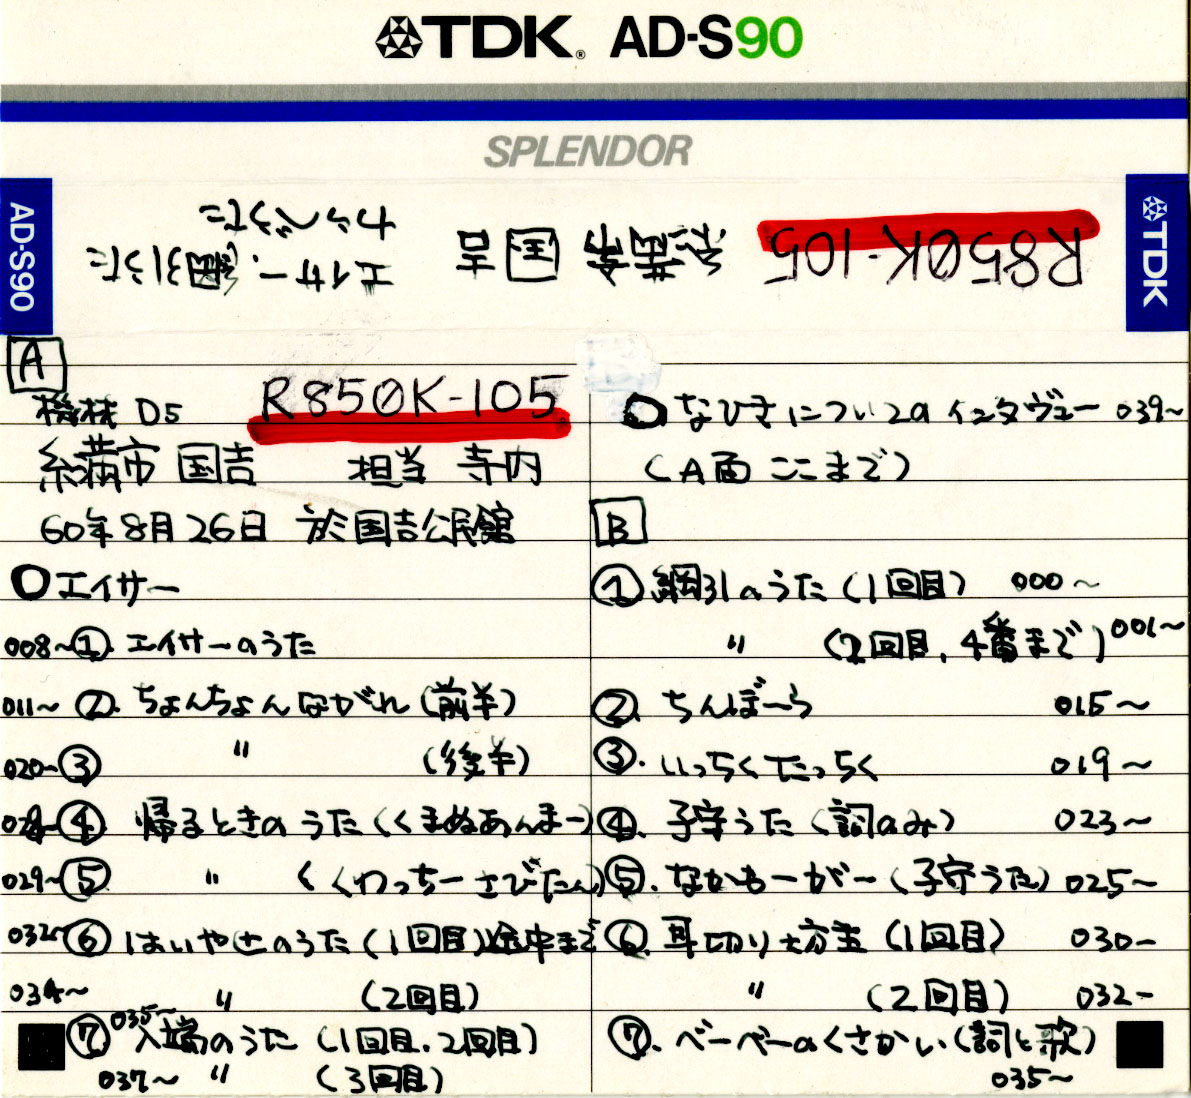 TDK® AD-S90
SPLENDOR
AD-S90
TDK
R850K-105
糸満市 国吉
エイサー、綱引うた
A
機材 D5 R850K-105
糸満市 国吉 担当 寺内
60年8月26日 於国吉公民館
○エイサー
008~① エイサーのうた
011~ ②. ちょんちょんながれ(前半)
020~③ 〃 (後半)
④. 帰るときのうた(くまぬあんまー)
029~⑤ 〃 (くわっちーさびたん)
032~⑥ はいやせのうた(1回目)途中まで
034~ 〃 (2回目)
⑦ 035~ 入場のうた (1回目.2回目)
037~ 〃 (3回目)
○なびきについてのインタヴュー 039~
(A面 ここまで)
B
① 綱引のうた(1回目) 000~
〃 (2回目.4番まで) 001~
②. ちんぼーら 015~
③. いっちくたっちく 019~
④. 子守うた(詞のみ) 023~
⑤. なかもーがー(子守うた) 025~
⑥. 耳切り坊主(1回目) 030~
〃 (2回目) 032~
⑦. べーべーのくさかい(詞と歌)
035~